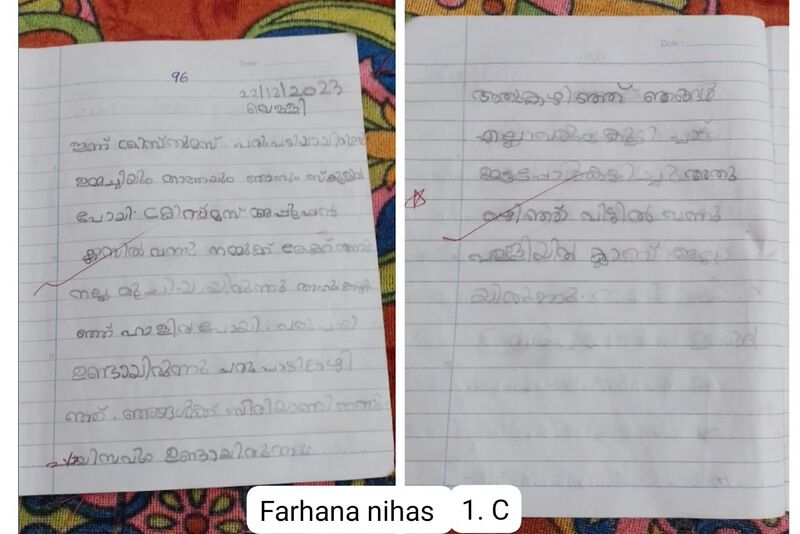 Date :
96
22/12/2023
വെള്ളി
ഇന്ന് ക്രിസ്തുമസ് പരുപടിയായിരുന്നു
ഉമ്മച്ചിയും താത്തയും ഞാനും സ്കൂളിൽ
പോയി. ക്രിസ്മസ് അപ്പൂപ്പൻ
ക്ലാസിൽ വന്നു നമ്മുക്ക് കേക്ക് തന്നു
നല്ല രുചിയായിരുന്നു അതുകഴി
ഞ്ഞ് ഹാളിൽ പോയി. പരുപാടി
ഉണ്ടായിരുന്നു പരുപാടികഴി
ഞ്ഞ്. ഞങ്ങൾക്ക് ബിരിയാണി തന്നു
പായിസവും ഉണ്ടായിരുന്നു.
Date :
അതുകഴിഞ്ഞ് ഞങ്ങൾ
എല്ലാവരുംകൂടി
കളിച്ചു അതു
കഴിഞ്ഞ് വീട്ടിൽ വന്നു
പള്ളിയിൽ ക്ലാസ് ഇല്ലാ
യിരുന്നു.
Farhana nihas 1. C